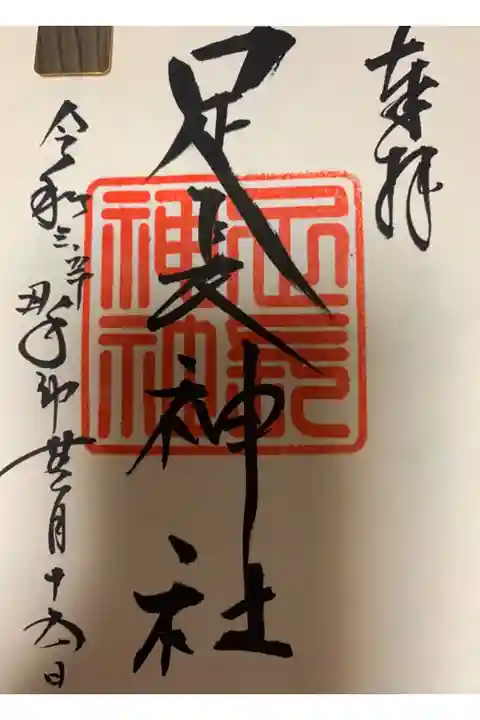 奉拝
足長神社
足長
神社
令和三辛丑年 月十六日